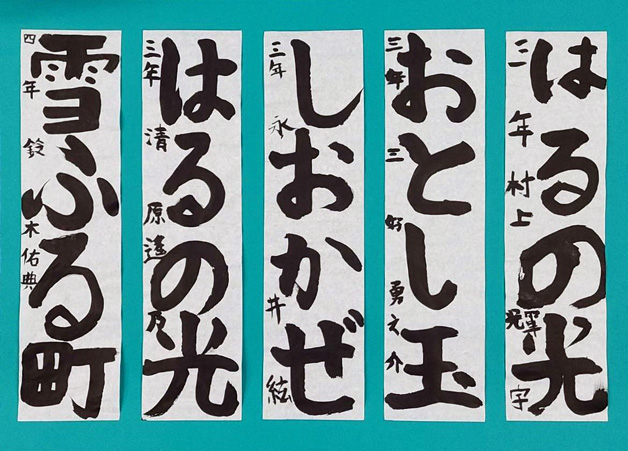 はるの光
二年 村上輝宇
おとし玉
三年 三好勇之介
しおかぜ
三年 永井紘
はるの光
三年 清原遥乃
雪ふる町
四年 鈴木佑典